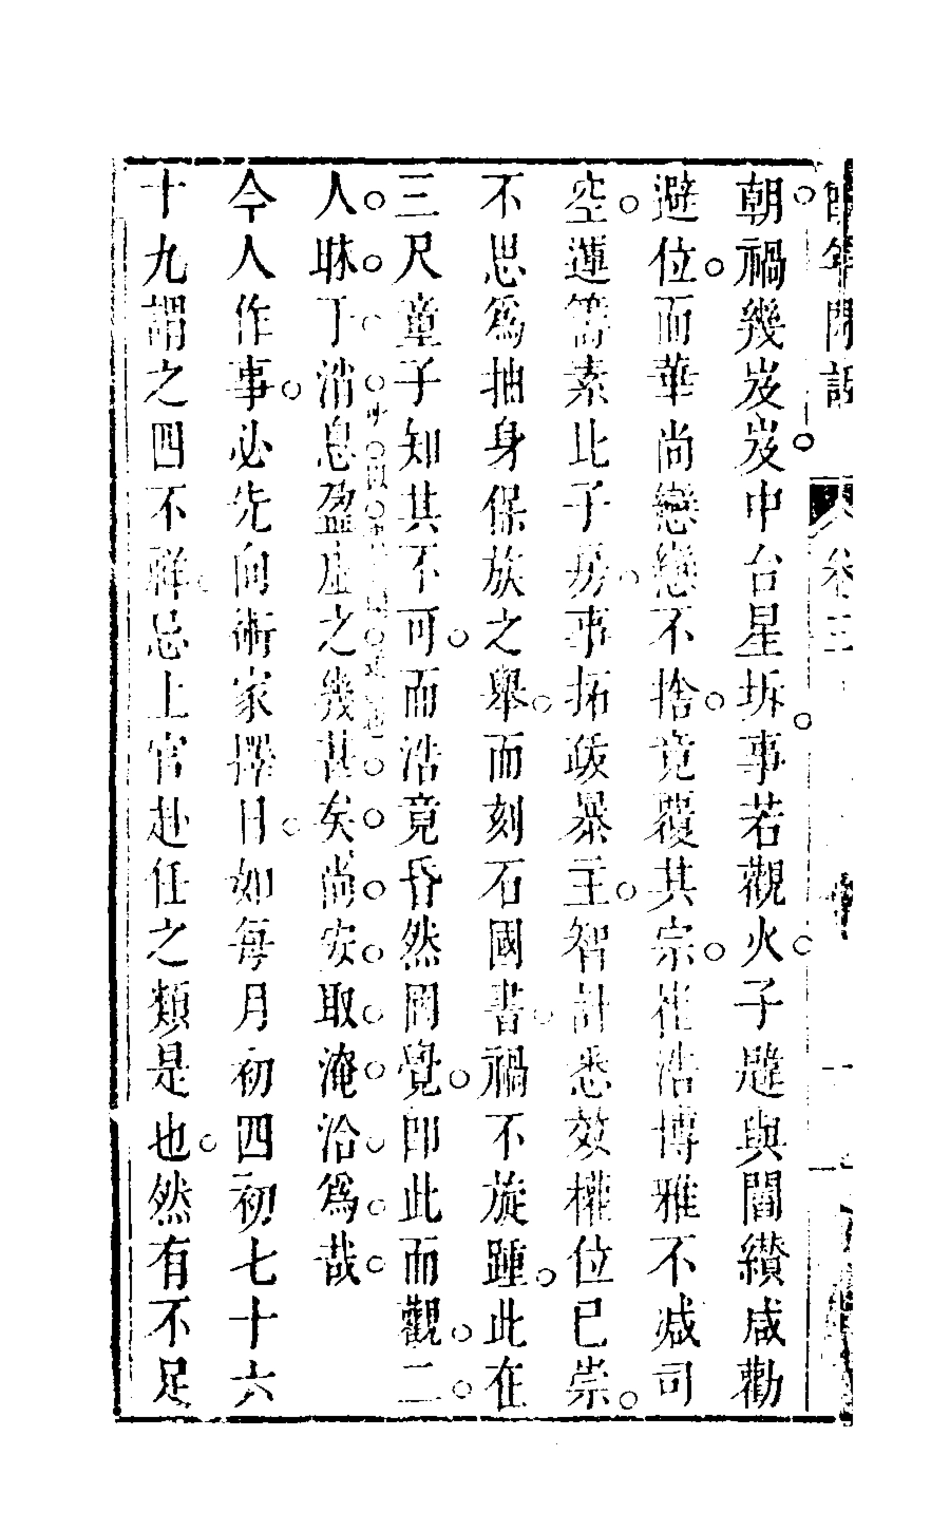 卷三
朝禍幾岌岌中台星坼事若觀火子韙與閻纘咸勸
避位而華尚戀戀不捨竟覆其宗崔浩博雅不減司
空運籌素比子房事拓跋暴主智計悉效權位已崇
不思爲抽身保族之舉而刻石國書禍不旋踵此在
三尺童子知其不可而浩竟昏然罔覺卽此而觀二
人昧于消息盈虛之幾甚矣尚安取淹洽爲哉
今人作事必先向術家擇日如每月初四初七十六
十九謂之四不祥忌上官赴任之類是也然有不足